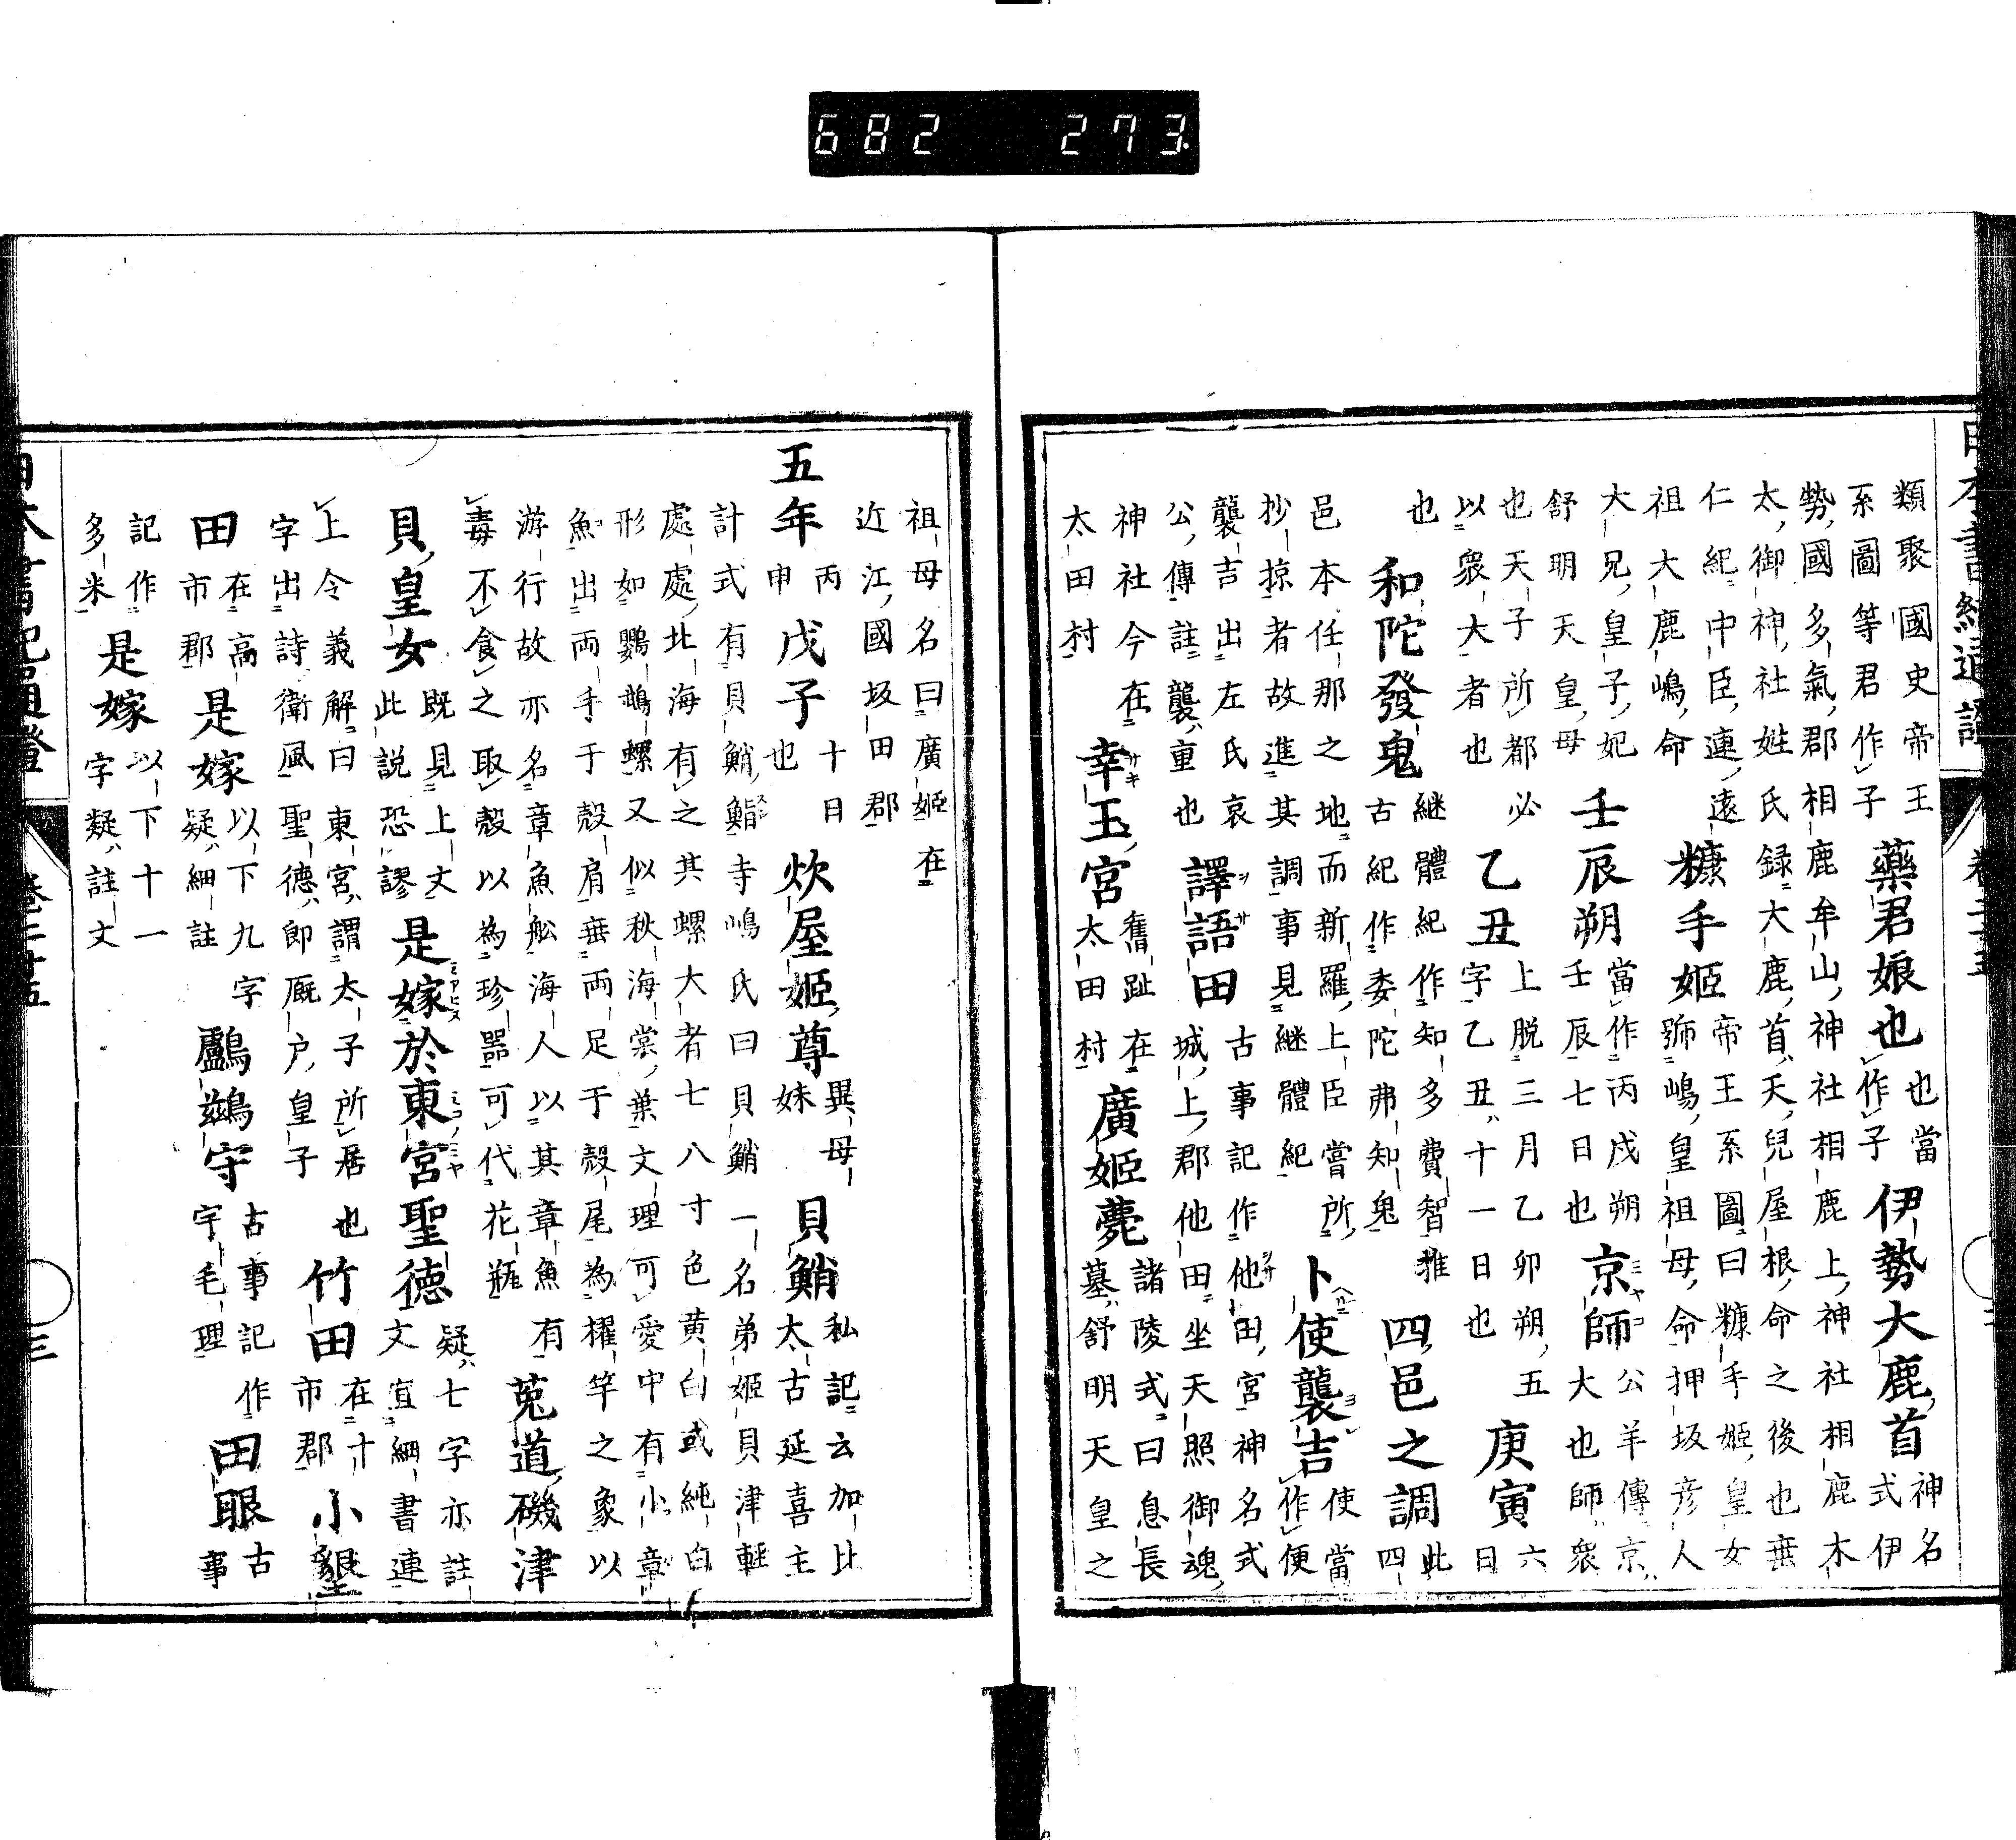 類聚國史帝王
系圖等君作子
藥君娘也
也當
作子
伊勢大鹿首
神名
式伊
勢國多氣郡相鹿牟山神社相鹿上神社相鹿木
太御神社姓氏録大鹿首天兒屋根命之後也垂
仁紀中臣連遠
祖大鹿嶋命
糠手姬
帝王系圖曰糠手姬皇女
號嶋皇祖母命押坂彦人
大兄皇子妃
舒明天皇母
壬辰朔
當作丙戌朔
壬辰七日也
京師
公羊傳京
大也師衆
也天子所都必
以衆大者也
乙丑
上脱三月乙卯朔五
字乙丑十一日也
庚寅
六
日
也
和陀發鬼
継體紀作知多費智推
古紀作委陀弗知鬼
四邑之調
此
四
邑本任那之地而新羅上臣嘗所
抄掠者故進其調事見継體紀
卜使襲吉
使當
作便
襲吉出左氏哀
公傳註襲重也
譯語田
古事記作他田宮神名式
城上郡他田坐天照御魂
神社今在
太田村
幸玉宮
舊趾在
太田村
廣姬薨
諸陵式曰息長
墓舒明天皇之
祖母名曰廣姬在
近江國坂田郡
五年
丙
申
戊子
十日
也
炊屋姬尊
異母
妹
貝鮹
私記云加比
太古延喜主
計式有貝鮹鮨寺嶋氏曰貝鮹一名弟姬貝津軽
處處北海有之其螺大者七八寸色黄白或純白
形如鸚鵡螺又似秋海棠葉文理可愛中有小章
魚出両手于殻肩垂両足于殻尾為櫂竿之象以
游行故亦名章魚舩海人以其章魚有
毒不食之取殻以為珍器可代花瓶
菟道磯津
貝皇女
既見上文
此説恐謬
是嫁於東宮聖徳
疑七字亦註
文宜細書連
上令義解曰東宮謂太子所居也
字出詩衛風聖德即厩戸皇子
竹田
在十
市郡
小墾
田
在高
市郡
是嫁
以下九字
疑細註
鸕鷀守
古事記作
宇毛理
田眼
古
事
記作
多米
是嫁
以下十一
字疑註文
682 273